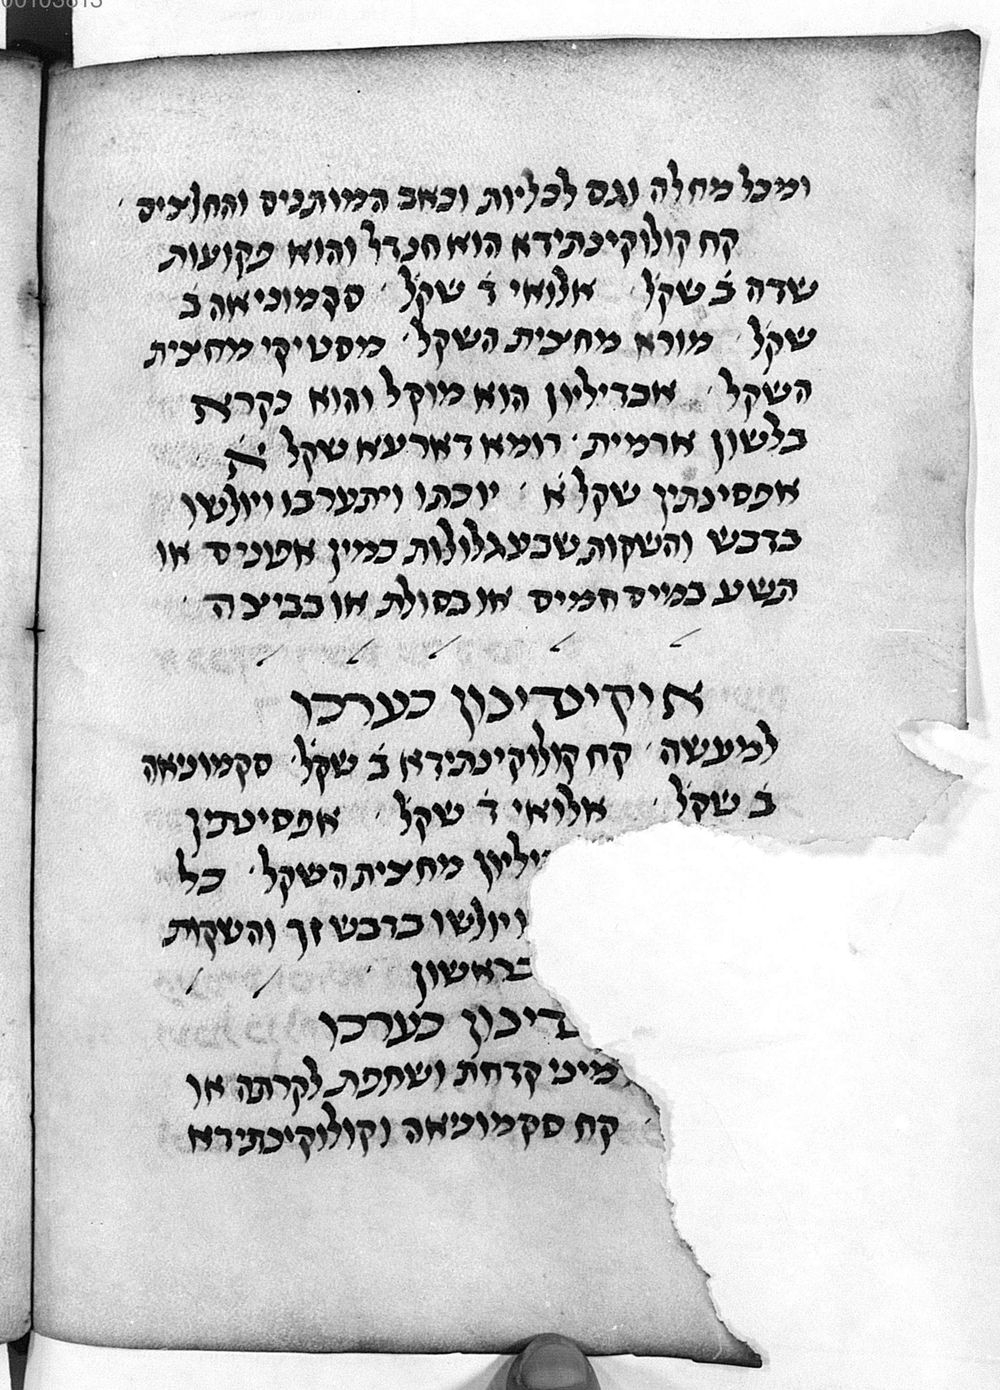 ומכל מחלה וגם לכליות וכאב המותנים והחלצים
קח קולוקינתידא הוא חנדל והוא פקועות
שדה ב̇ שקל׳ אלואי ד̇ שקל׳ סקמוניאה ב̇
שקל׳ מורא מחצית השקל׳ מסטיקי מחצית
השקל׳ אבדיליון הוא מוקל והוא נקרא
בלשון ארמית׳ רומא דארעא שקל א̇
אפסינתין שקל א̇ ׳ יוכתו ויתערבו ויולשו
בדבש והשקות שבע גלולות כמין אפונים או
תשע במים חמים או בסולת או בביצה
איקיסדיכון כערכו
למעשה׳ קח קולוקינתידא ב̇ שקל׳ סקמוניאה
ב̇ שקל׳ אלואי ד̇ שקל׳ אפסינטין
יליון מחצית השקל׳ כל
ויולשו בדבש זך והשקות
כראשון
דיכון כערכו
מיני קדחת ושחפת לקרתה או
קח סקמוניאה וקולוקינתידא